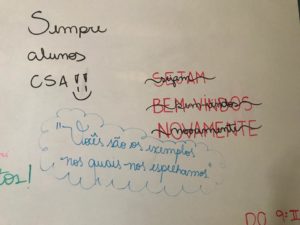 Sempre
alunos
CSA
SEJAM
sejam
BEM-VINDOS
bem vindos
NOVAMENTE
novamente
"Vocês são os exemplos
nos quais nos espelhamos"
tos!
DO 9:II